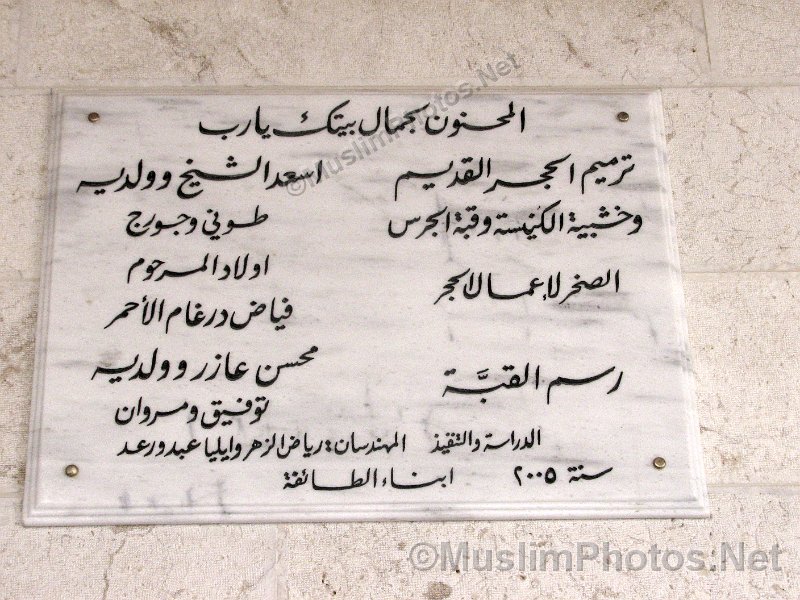 المحسنون بجمال بيتك يارب
ترميم الحجر القديم اسعد الشيخ وولديه
وخشبية الكنيسة وقبة الجرس طوني وجورج
اولاد المرحوم
الصخر لإعمال الحجر فياض درغام الأحمر
رسم القبَّة محسن عازر وولديه
توفيق ومروان
الدراسة والتنفيذ المهندسان: رياض الزهر وايليا عبدو رعد
سنة ٢٠٠٥ ابناء الطائفة
©MuslimPhotos.Net
©MuslimPhotos.Net